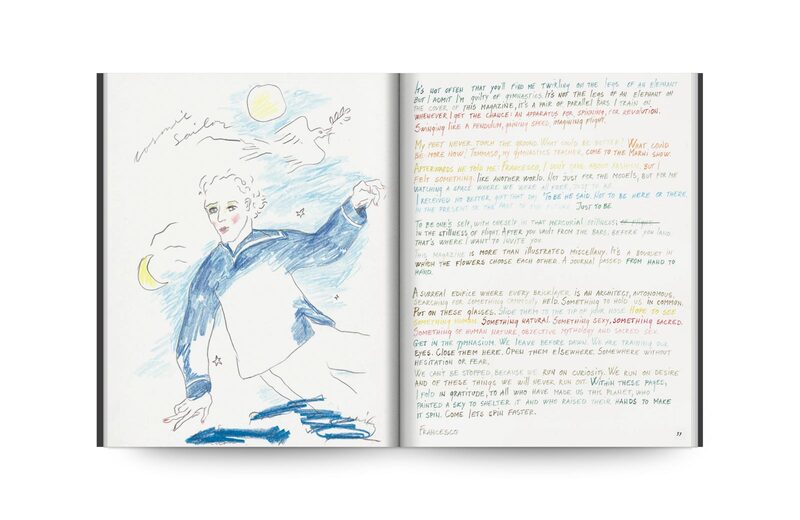 cosmic
sailor
It's not often that you'll find me twirling on the legs of an elephant
but I admit I'm guilty of gymnastics. It's not the legs of an elephant on
the cover of this magazine, it's a pair of parallel bars. I train on
whenever I get the chance: an apparatus for spinning, for revolution.
Swinging like a pendulum, gaining speed, imagining flight.
My feet never touch the ground. What could be better? What could
be more now? Tommaso, my gymnastics teacher, come to the Marni show.
Afterwards he told me: Francesco, I don't care about fashion, but I
felt something. Like another world. Not just for the models, but for me
watching a space where we were all free, just to be.
I received no better gift that day. To be he said. Not to be here or there,
in the present or the past or the future. Just to be.
To be one's self, with oneself in that mercurial stillness
in the stillness of flight. After you vault from the bars, before you land
that's where I want to invite you.
This magazine is more than illustrated miscellany. It's a bouquet in
which the flowers choose each other. A journal passed from hand to
hand.
A surreal edifice where every bricklayer is an architect, autonomous,
searching for something commonly held. Something to hold us in common.
Put on these glasses. Slide them to the tip of your nose. Hope to see
something human. Something natural. Something sexy, something sacred.
Something of human nature, objective mythology and sacred sex.
Get in the gymnasium. We leave before dawn. We are training our
eyes. Close them here. Open them elsewhere. Somewhere without
hesitation or fear.
We can't be stopped, because we run on curiosity. We run on desire
and of these things we will never run out. Within these pages,
I fold in gratitude, to all who have made us this planet, who
painted a sky to shelter it and who raised their hands to make
it spin. Come lets spin faster.
Francesco
11